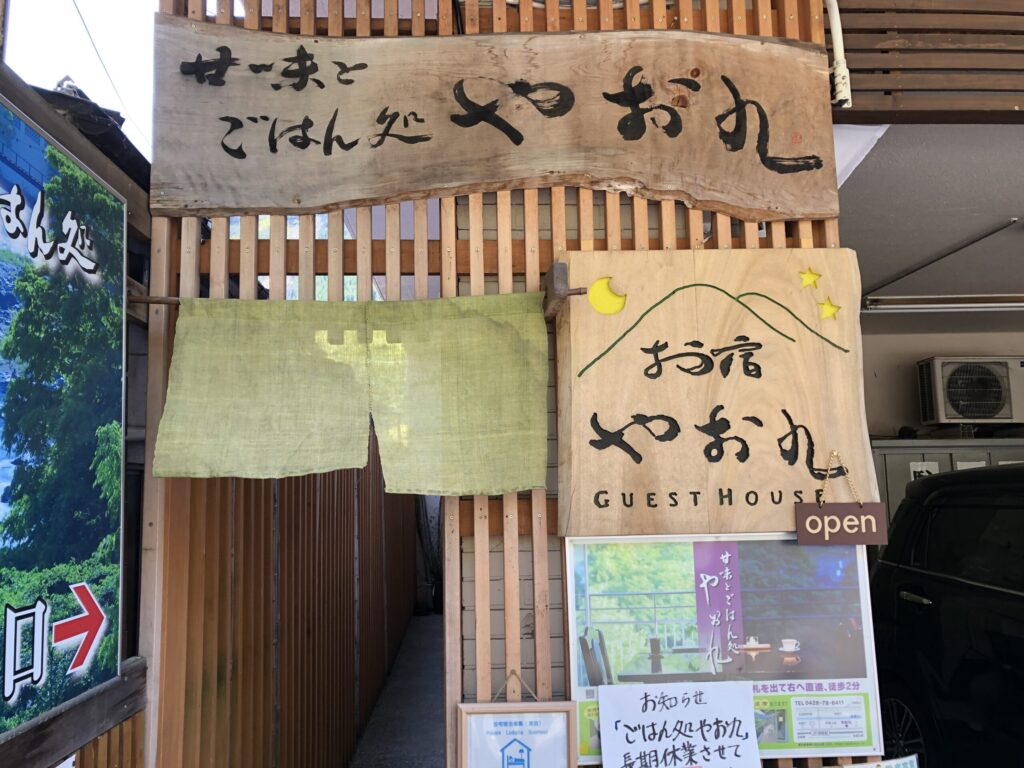 甘味と
ごはん処 やお九
はん処
口
お宿
やお九
GUEST HOUSE
open
甘味とごはん処
やお九
札を出て右へ直進、徒歩2分
TEL 0428-78-8411
お知らせ
「ごはん処やお九」
長期休業させて